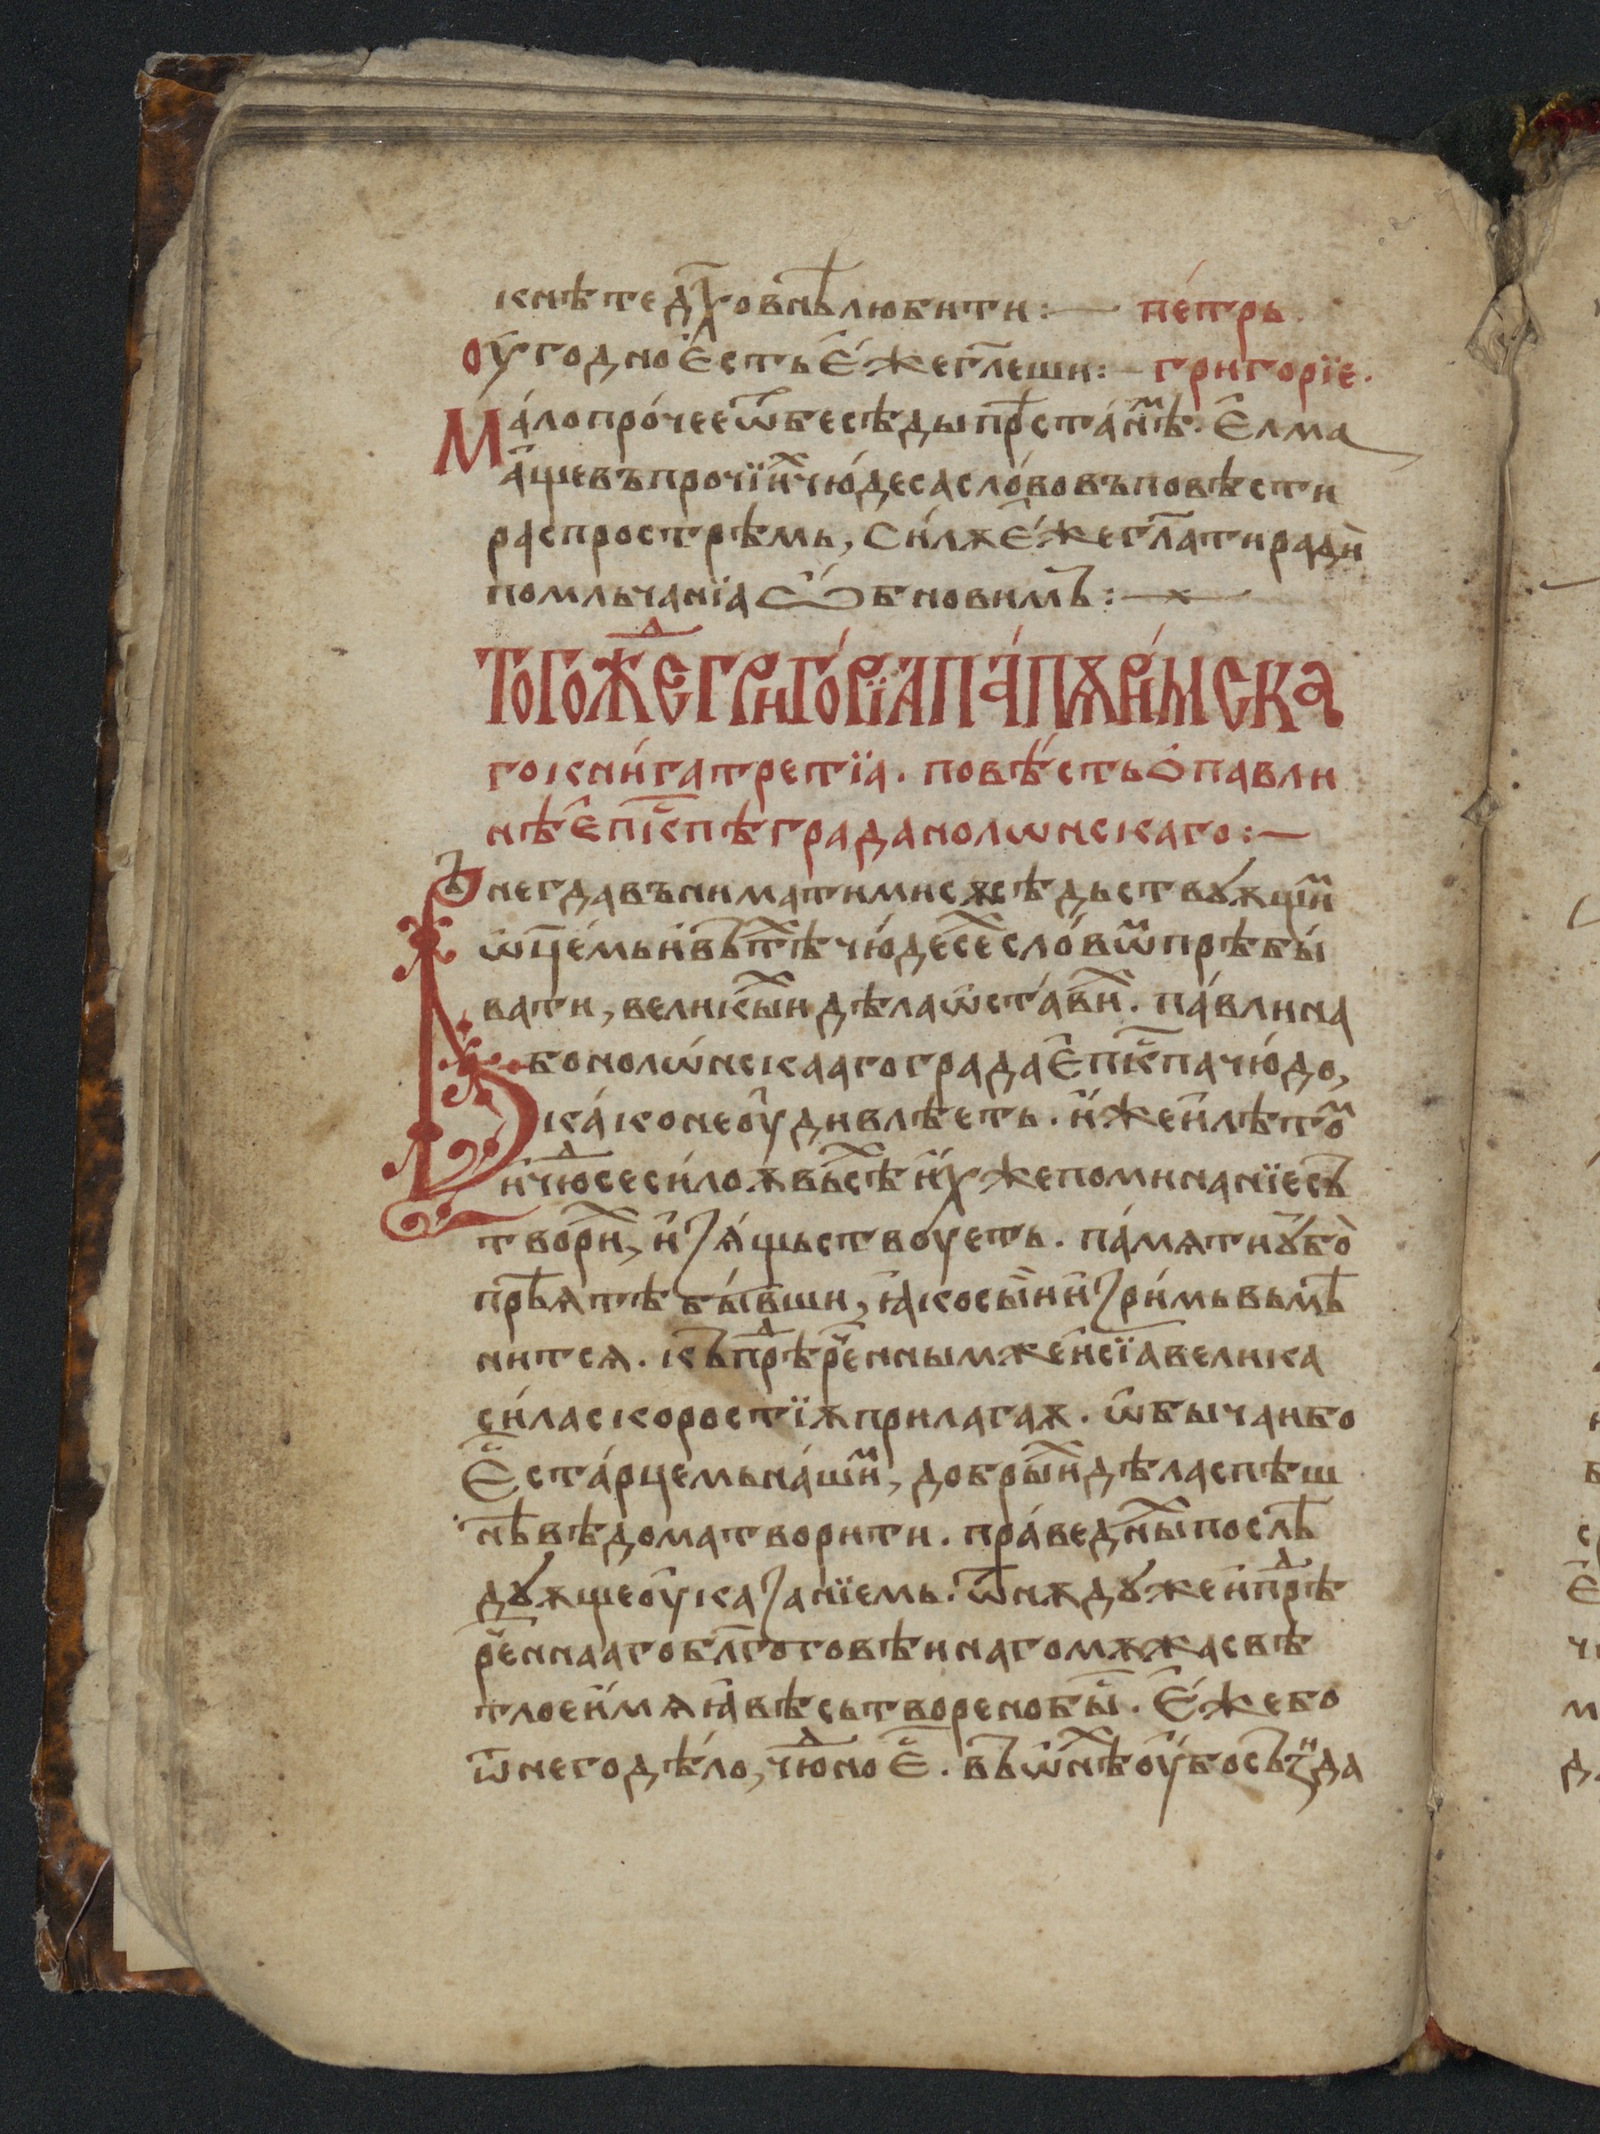 кнѣте дх҃овнѣ любити :— пе́трь.
оу҆го́дно є҆́сть є҆́же гл҃еши :— григорїе.
Ма́ло про́чее ѿ бесѣды прѣста́нѣмь. Є҆лма
а҆́ще въ прочїиⷯ чю́деса сло́во въ повѣсти
распрострѣмь, си́лѫ є҆́же гл҃ати ради̏
помльчанїа ѡ҆бновимъ :—
Тогожⷣе григо́рїа па́пѫ ри́мска
го кни́га третїа. повѣ́сть ѡ҆ павли
нѣ є҆піⷭкпѣ града нолѡнскаго :—
Внегда вънимати ми сѧ сѣдьствꙋѫщіиⷨ
ѡ҆ц҃емь и҆ въ тѣⷯ чю́десеⷯ сло́вѡⷨ прѣбы́
вати, великыиⷯ дѣла ѡ҆ста́виⷯ. па́влина
бо нолѡ́нскааго града є҆піⷭкпа чю́до,
ка́ко не оу҆дивлѣеть. и҆́же и҆ лѣтоⷨ
и҆ чюⷣсе си́лоѫ въсѣⷯ и҆́хже поминанїе съ
твориⷯ, и҆зѧ́щьствоуеть. па́мѧти ᲂу҆бо̀
прѣѧтѣ бы́вши, ꙗ҆ко сы̏и и҆ з ри́мь вьмѣ
нитсѧ. къ прⷣѣреⷱннымже и҆ сїа велика
си́ла скоростїѫ прилагаѫ. ѡ҆бычаи бо
є҆ⷭ ста́рцемь на́шиⷨ, добрыиⷯ дѣла спѣш
нѣ вѣдома творити. пра́ведныⷯ послѣ
дꙋѫще оу҆казанїемь. ѿнѫдꙋже и҆ прⷣѣ
реⷱннааго блг҃оговѣинаго мѫжа свѣ
тлое и҆́мѧ ꙗ҆́вѣ сьтворено быⷭ. є҆́же бо
ѿ него дѣ́ло, чюⷣно є҆ⷭ. въ ѡ҆нѣⷯ оу҆бо съзиⷣда